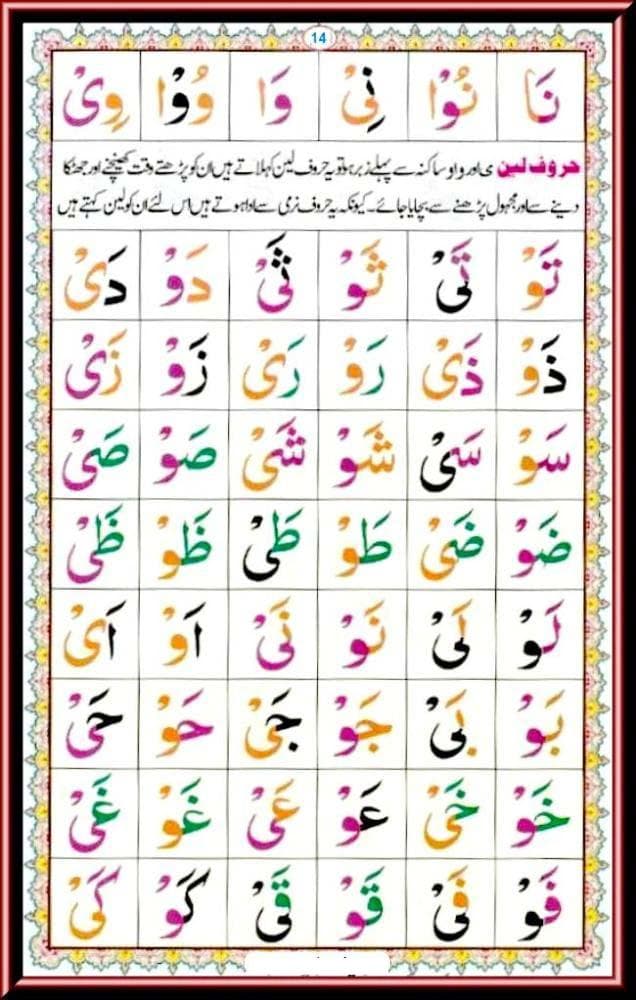 14
نَا نُوْا نِىْ وَا وُوْا وِىْ
حروف لین ی اور واو ساکنہ سے پہلے زبر ہو تو یہ حروف لین کہلاتے ہیں ان کو پڑھتے وقت کھینچنے اور جھٹکا
دینے سے اور مجہول پڑھنے سے بچایا جائے۔ کیونکہ یہ حروف نرمی سے ادا ہوتے ہیں اس لئے ان کو لین کہتے ہیں
تَوْ تَىْ ثَوْ ثَىْ دَوْ دَىْ
ذَوْ ذَىْ رَوْ رَىْ زَوْ زَىْ
سَوْ سَىْ شَوْ شَىْ صَوْ صَىْ
ضَوْ ضَىْ طَوْ طَىْ ظَوْ ظَىْ
لَوْ لَىْ نَوْ نَىْ اَوْ اَىْ
بَوْ بَىْ جَوْ جَىْ حَوْ حَىْ
خَوْ خَىْ عَوْ عَىْ غَوْ غَىْ
فَوْ فَىْ قَوْ قَىْ كَوْ كَىْ